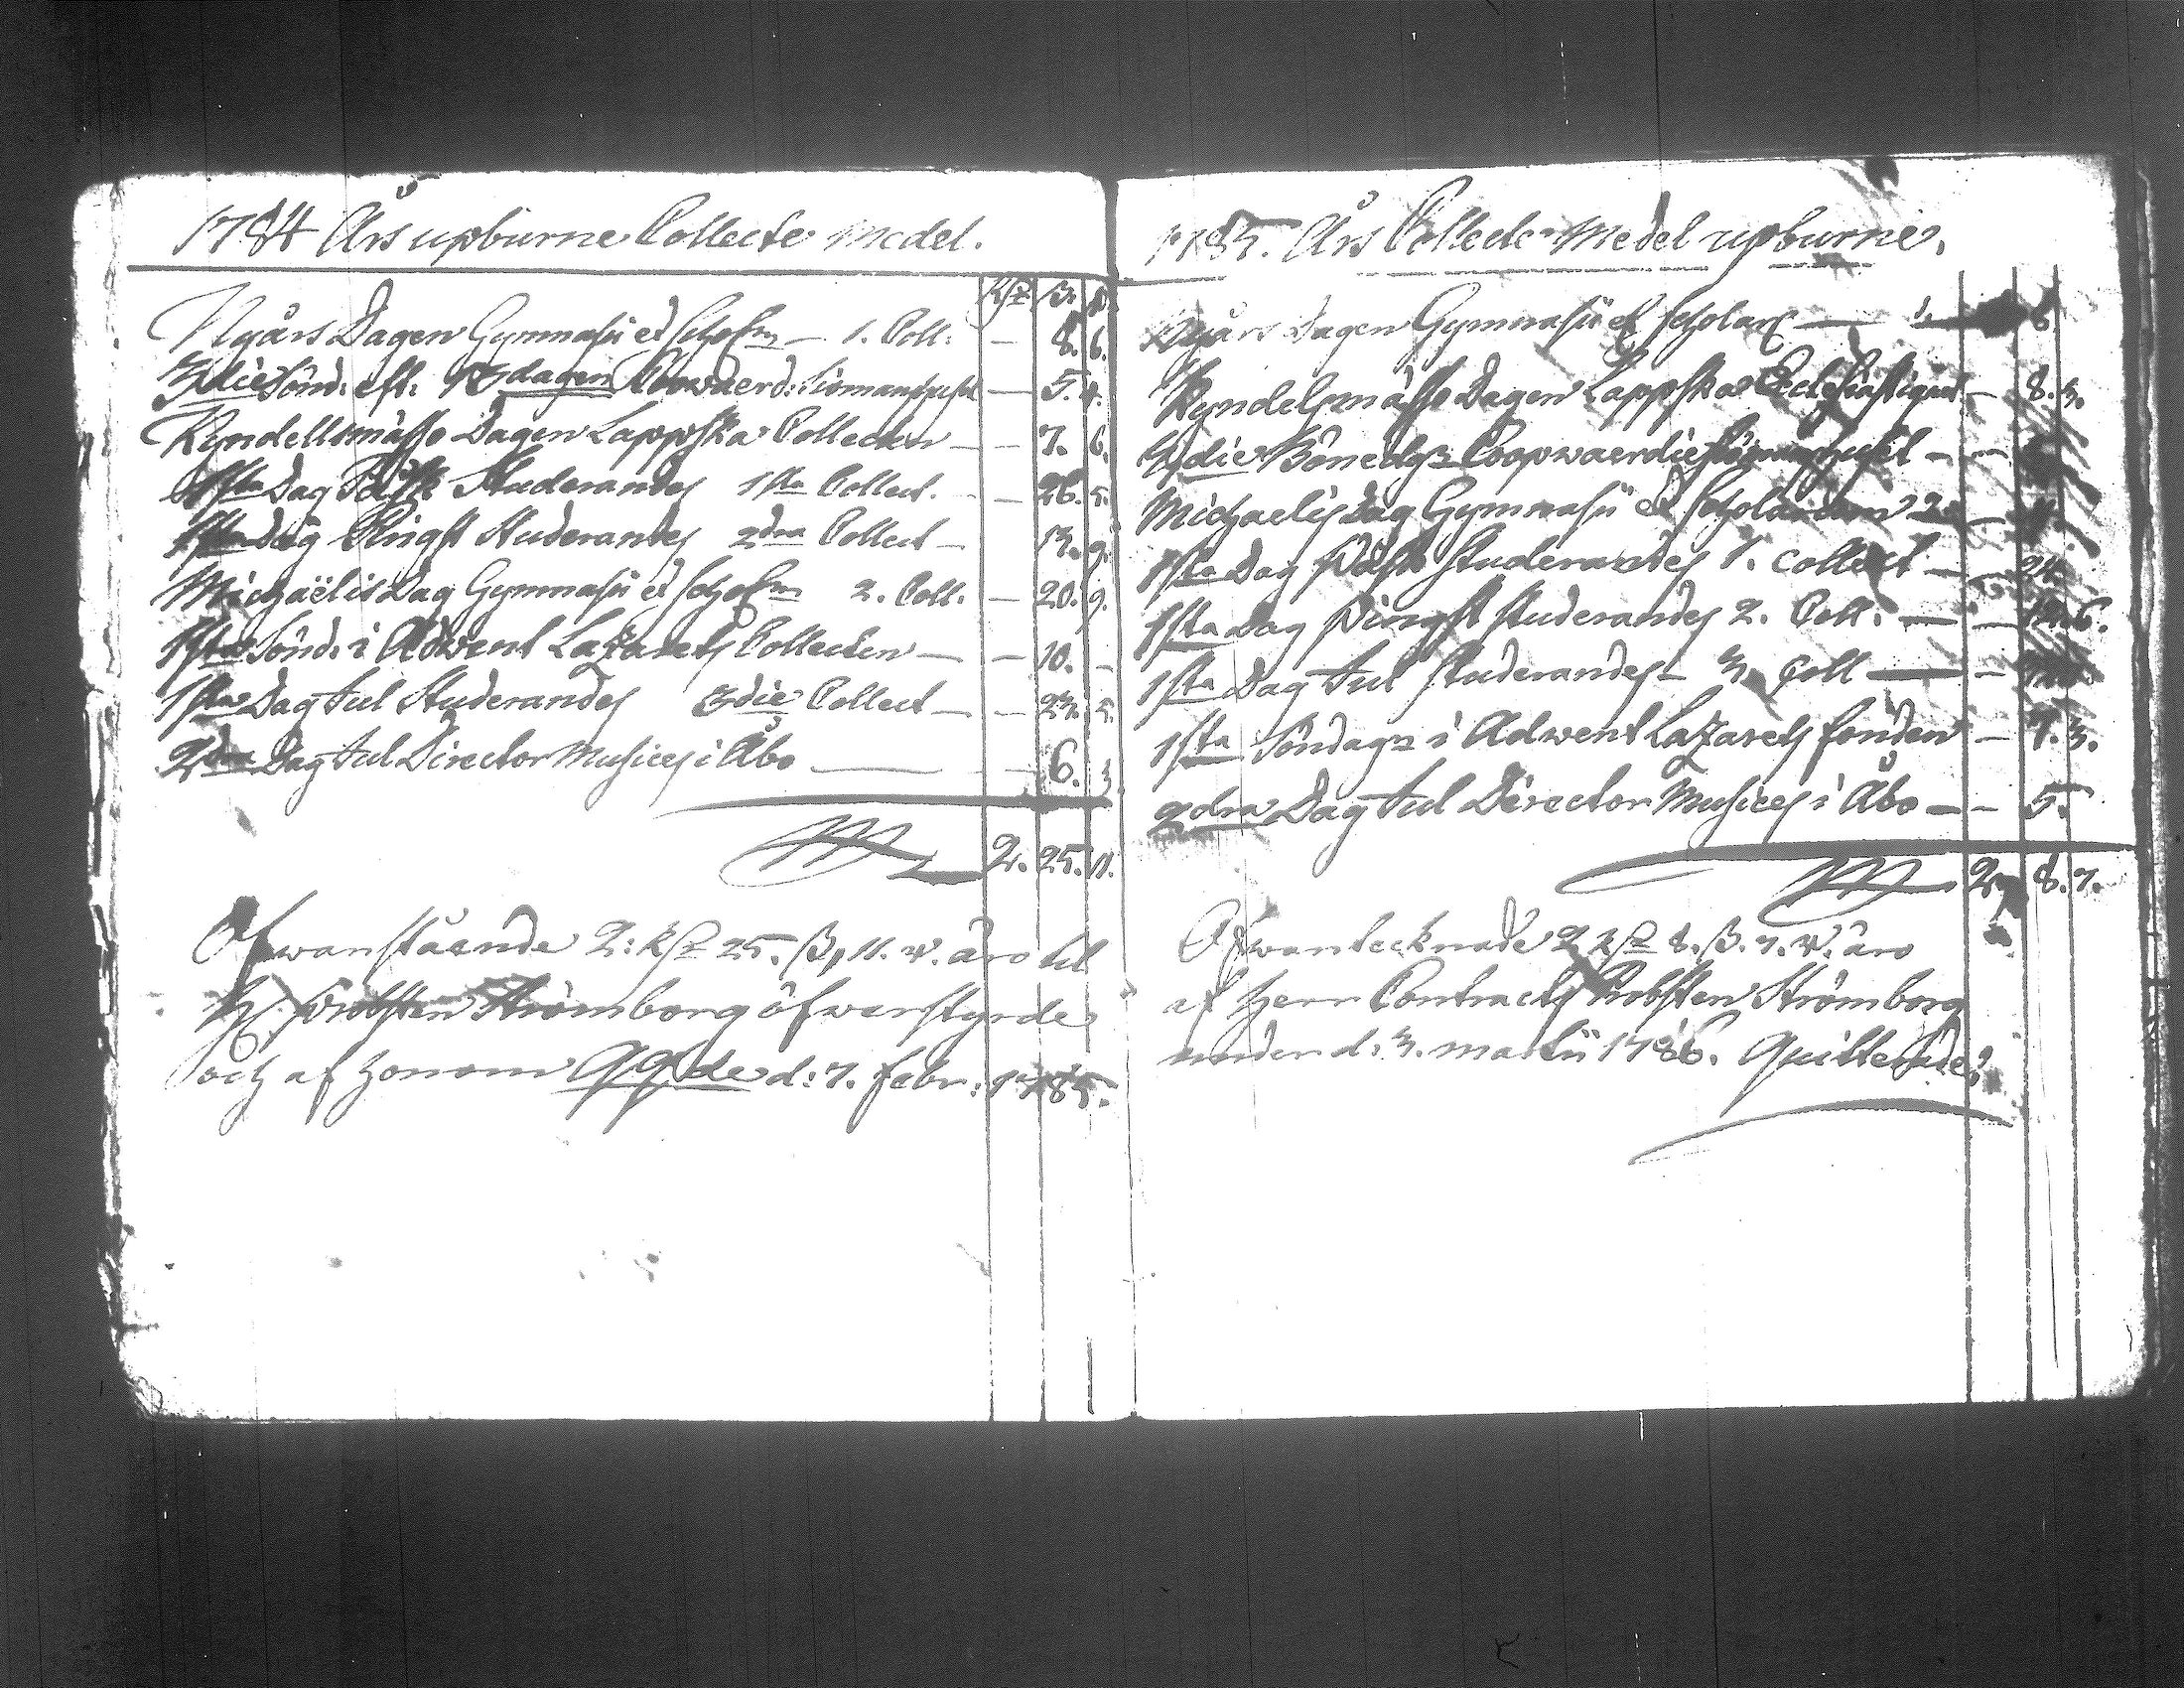 1784 Års upburne Collecte medel.
Rdr ß. d.
Nyårs Dagen Gymnasii et Scholm — 1. Coll. — 8. 6.
3die Sönd. eft. 13dagen Coopwaerd: — 5. 4.
Kyndellsmässo Dagen Lappska Collecten — — 7. 6.
1sta Dag Påsk Studerandes 1sta Collect. — 26. 5.
1sta Dag Pingst Studerandes 2dra Collect — 13. 9.
Michaëlis Dag Gymnasii et Scholm 2. Coll. — 20. 9.
1sta Sönd. i Adwent Lazarets Collecten — — 10. —
1sta Dag Jul Studerandes 3die Collect — — 23. 5.
2dra Dag Jul Director Musices i Åbo — — 6. 3
2. 25. 11.
Ofwanstående 2: Rdr 25. ß, 11. d. äro til
H. Probsten Strömborg öfwerstyrde
och af honom qq:de d: 7. Febr: 1785.
1785. Års Collecte Medel upburne.
Nyårs Dagen Gymnasii et Scholar — 1. 8.
Kyndelsmässo Dagen Lappska Ecclesiastique — 8. 3.
3die Bönedgr Coopwaerdie — —
Michaelis Dag Gymnasii et Scholarum 2
1sta Dag Påsk Studerandes 1. Collect — 24.
1sta Dag Pingst Studerandes 2. Coll. — — 6.
1sta Dag Jul Studerandes 3. Coll — —
1sta Söndagr i Adwent Lazarets fonden — 7. 3.
2dra Dag Jul Director Musices i Åbo — — 5.
2. 8. 7.
Ofwantecknade 2 Rdr 8. ß. 7. d. äro
af Herr Contracts Probsten Strömborg
under d: 3. Martii 1786. Quitterade.